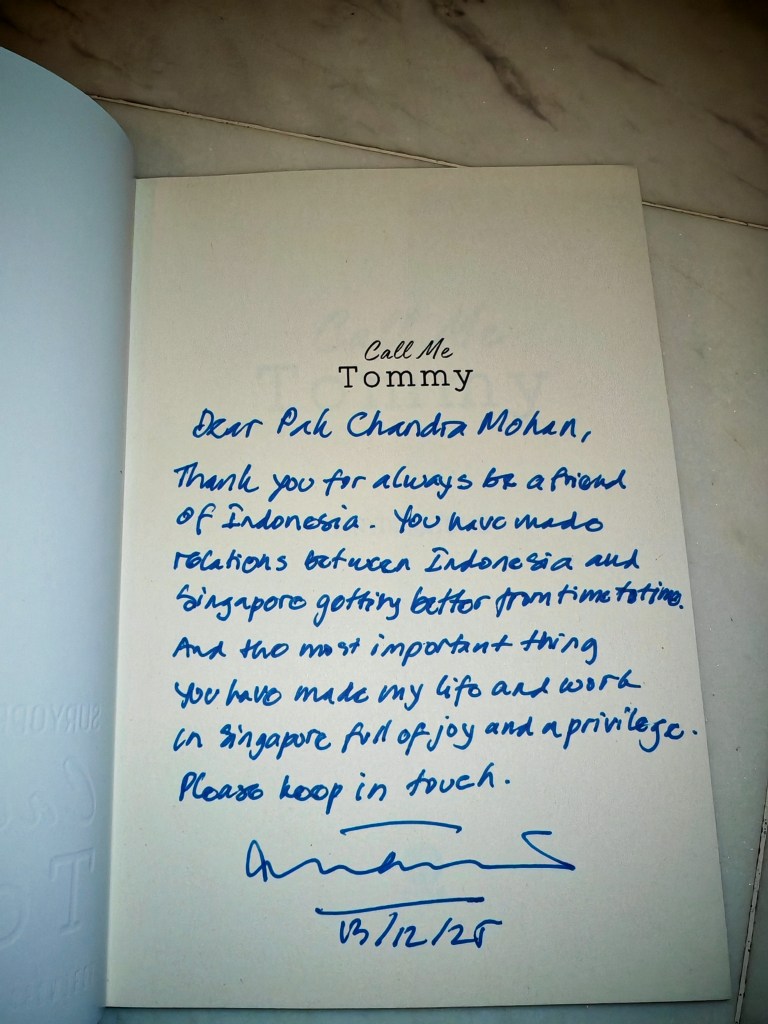 Call Me
Tommy
Dear Pak Chandra Mohan,
Thank you for always be a friend
of Indonesia. You have made
relations between Indonesia and
Singapore getting better from time to time.
And the most important thing
you have made my life and work
in Singapore full of joy and a privilege.
Please keep in touch.
13/12/25